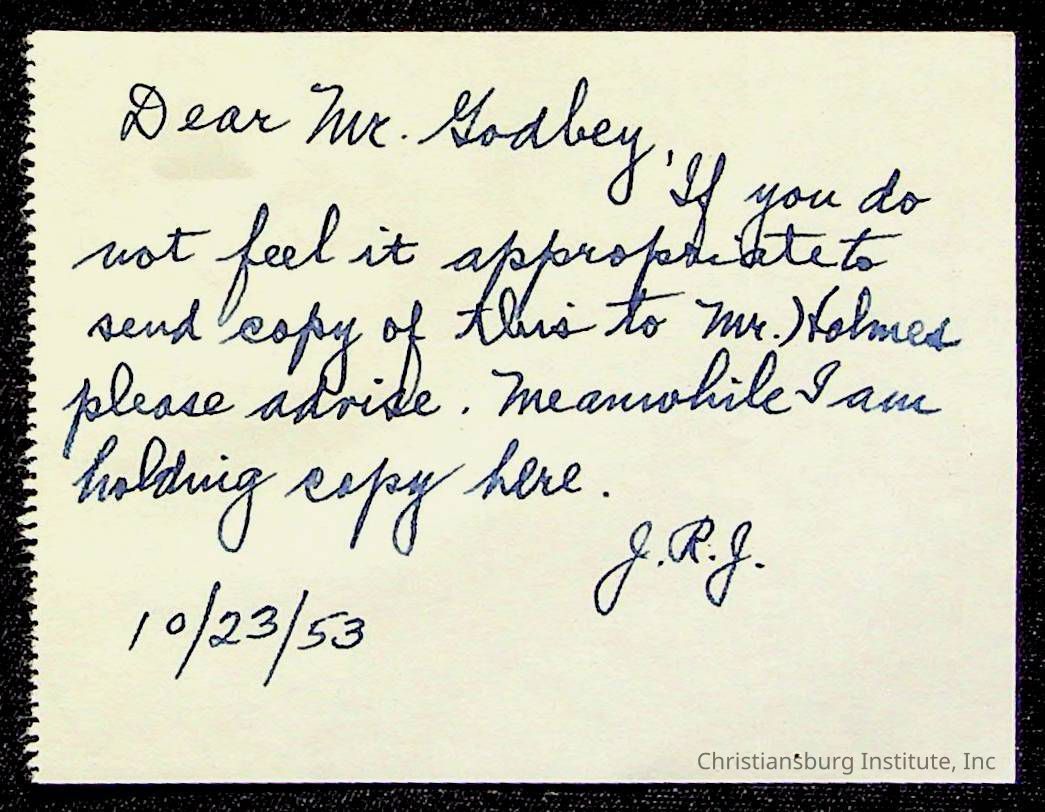 Dear Mr. Godbey,
If you do
not feel it appropriate to
send copy of this to Mr. Holmes
please advise. Meanwhile I am
holding copy here.
J.R.J.
10/23/53
Christiansburg Institute, Inc